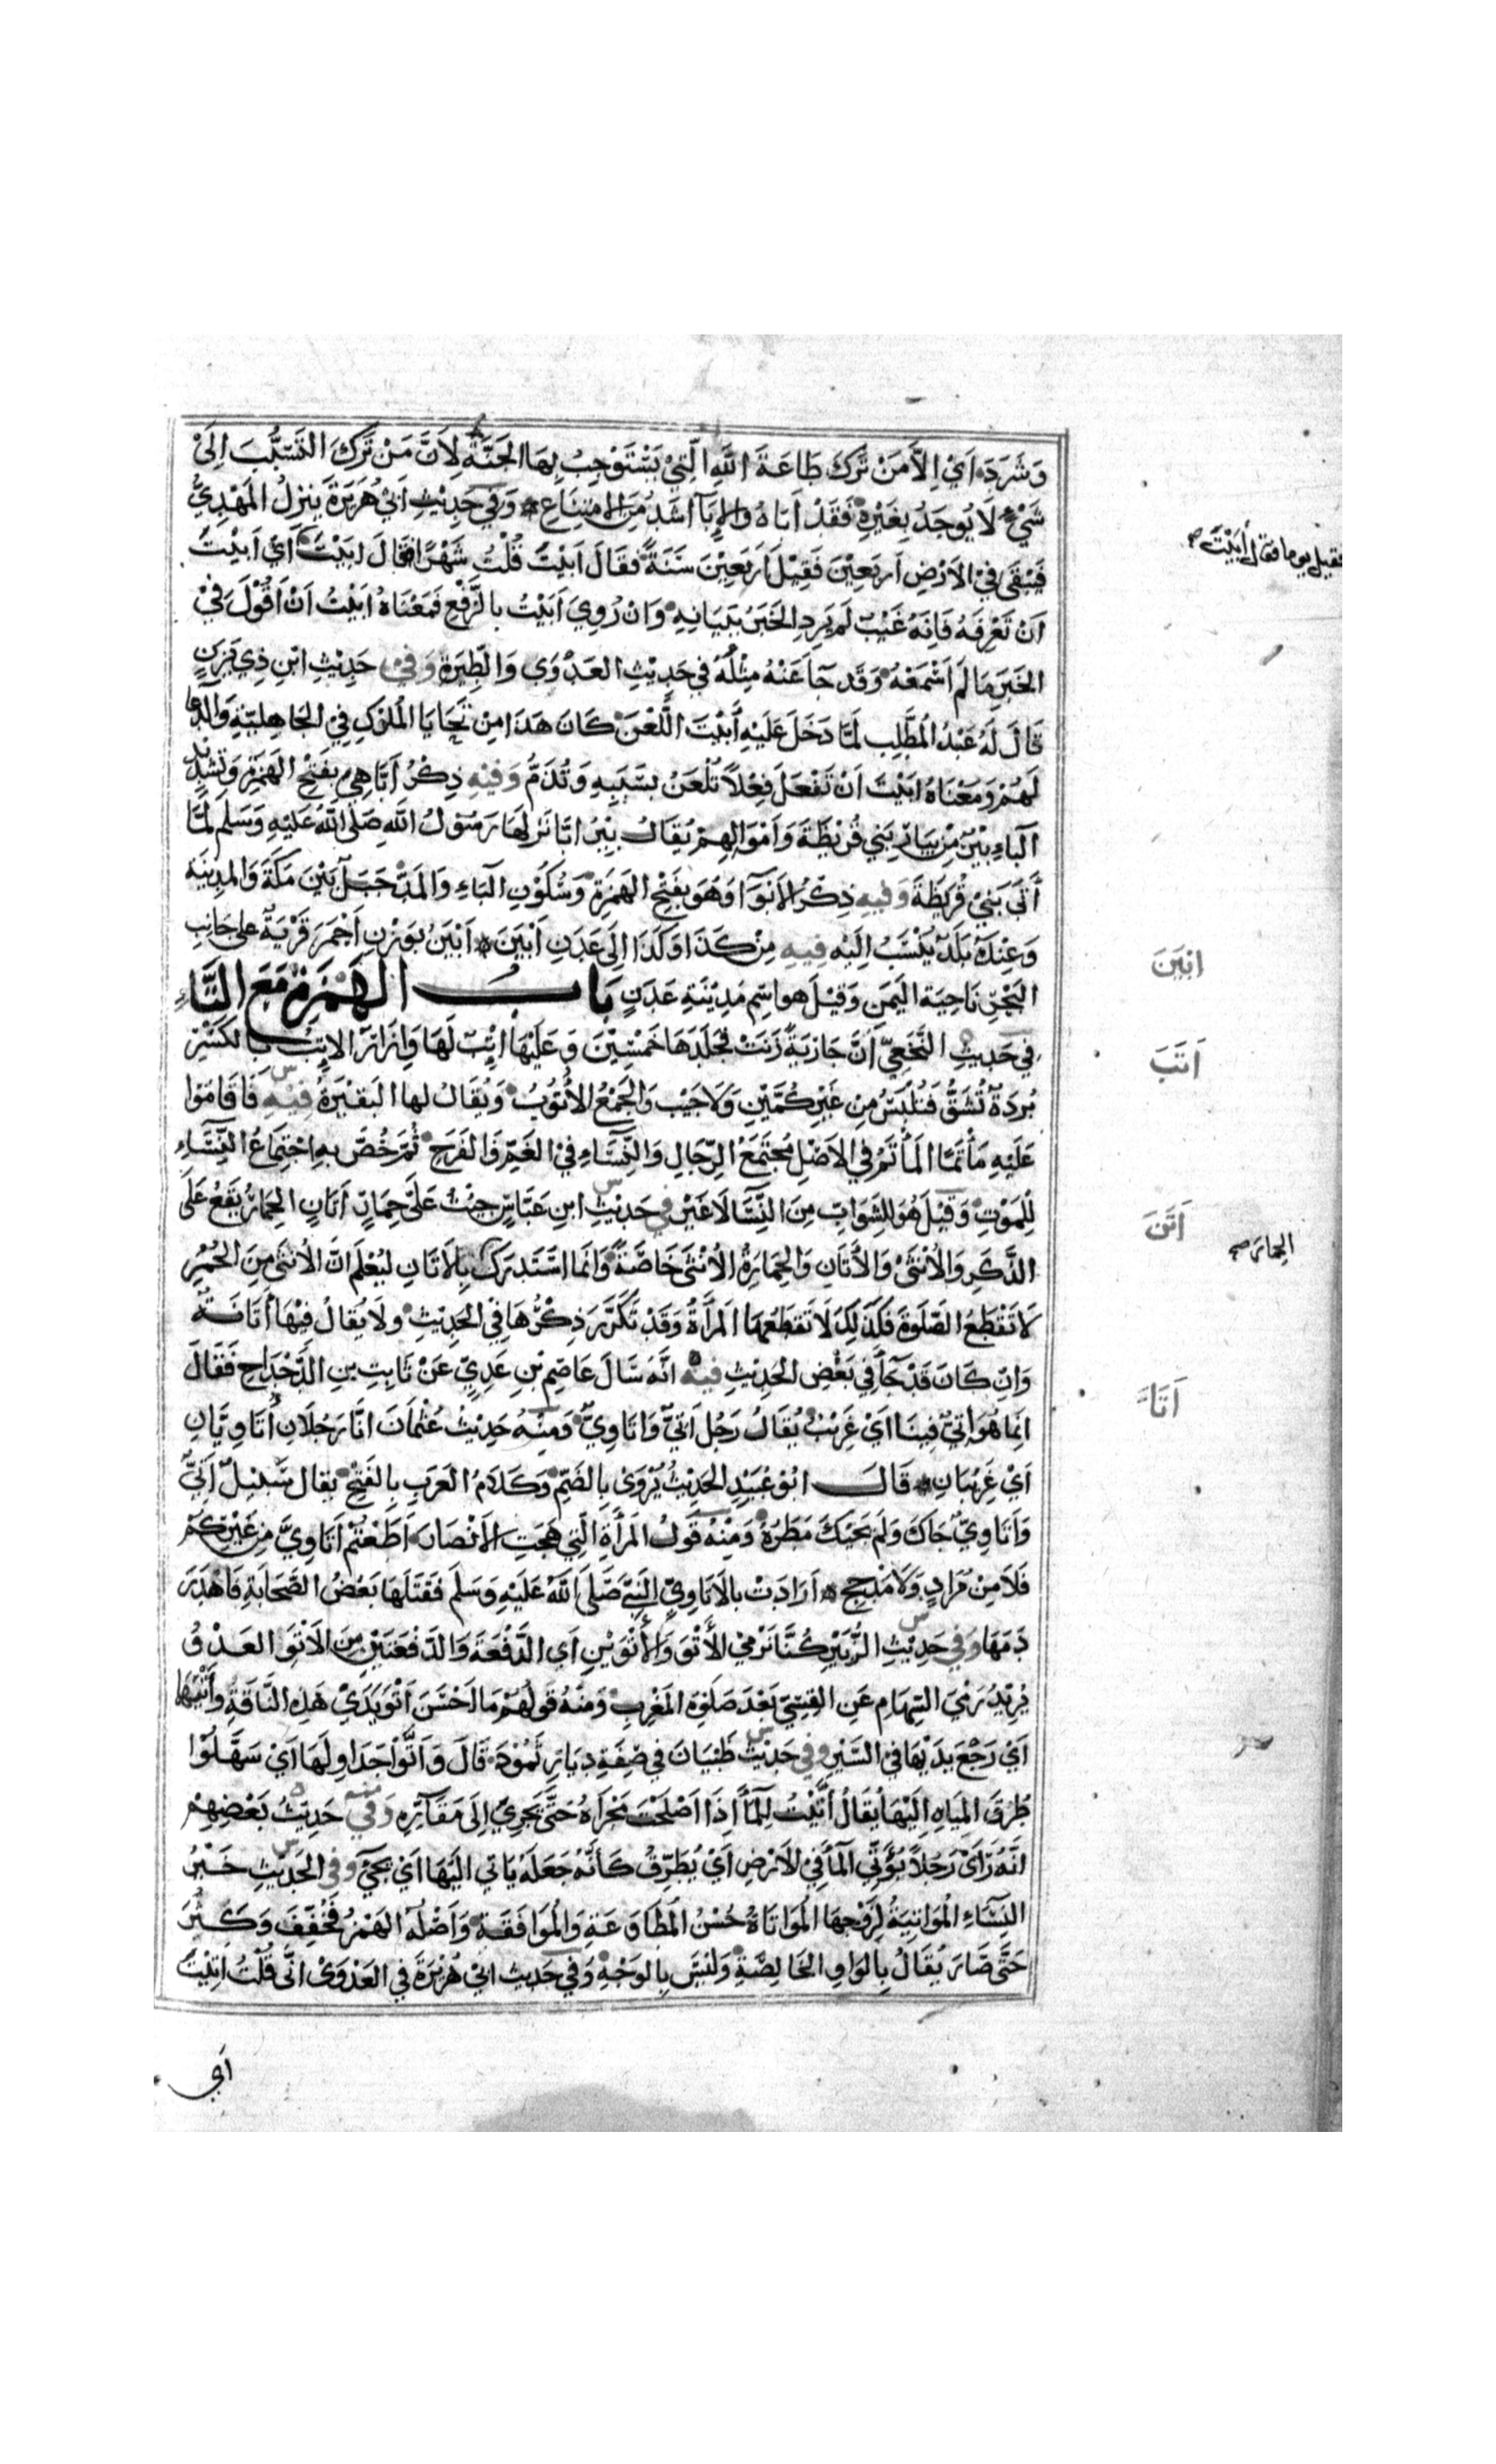 وَشَرَدَ اَيْ اِلاَّ مَنْ تَرَكَ طَاعَةَ اللهِ الَّتِيْ يَسْتَوْجِبُ بِهَا الجَنَّةَ لِاَنَّ مَنْ تَرَكَ التَسَبُّبَ اِلَىْ
شَيْءٍ لَا يُوجَدُ بِغَيْرِهِ فَقَدْ اَبَاهُ وَالاِبَآ اَشَدُّ مِنَ الاِمْتِنَاعِ وَفي حَدِيْثِ اَبيْ هُرَيرَةَ يَنزِلُ المَهْدِيُّ
فَيَبْقَى فيْ الاَرْضِ اَرْبَعِيْنَ فَقِيْلَ اَرْبَعِيْنَ سَنَةً فَقَالَ اَبَيْتَ قُلْتُ شَهْرًا فقَالَ ابَيْتَ اَيْ اَبَيْتَ
فقيل يوما فقال أَبَيْتَ صح
اَنْ تَعْرِفَهُ فَاِنَّهُ غَيْبٌ لَم يَرِدِ الخَبَرُ بِبَيَانِهِ وَاِنْ رُوِيَ اَبَيْتُ بِالرَّفْعِ فَمَعْنَاهُ اَبَيْتُ اَنْ اَقُوْلَ فيْ
الخَبَرِ مَا لَم اَسْمَعْهُ وَقَد جَآ عَنْهُ مِثْلُهُ في حَدِيْثِ العَدْوَى وَالطِيَرَةِ وَفي حَدِيْثِ ابْنِ ذِي يَزَنٍ
قَالَ لَهُ عَبْدُ المُطَّلِبِ لَمَّا دَخَلَ عَلَيْهِ أَبَيْتَ اللَّعْنَ كَانَ هَذَا مِنْ تَحَايَا المُلُوْكِ فيْ الجَاهِلِيَّةِ وَالدُّعَا
لَهُمْ وَمَعْنَاهُ اَبَيْتَ اَنْ تَفْعَلَ فِعْلاً تُلْعَنُ بِسَبَبِهِ وَتُذَمُّ وَفِيْهِ ذِكْرُ اَبَّا هِيَ بِفَتْحِ الهَمْزَةِ وَتَشْدِيْدِ
البَاءِ بِيْرٌ مِنْ بِيَارِ بَنِي قُرَيْظَةَ وَاَمْوَالِهِمْ يُقَالُ بِيْرُ ابَّا نَزَلَهَا رَسُوْلُ اللهِ صَلَى اللهُ عَلَيْهِ وَسَلَم لَمَّا
أَتَى بَنِيْ قُرَيْظَةَ وَفِيهِ ذِكْرُ الاَبْوَآ وَهُوَ بِفَتْحِ الهَمْزَةِ وَسُكُوْنِ البَاءِ وَالمَدِّ جَبَلٌ بَيْنَ مَكَّةَ وَالمَدِيْنَةِ
وَعِنْدَهُ بَلَدٌ يُنْسَبُ اِلَيْهِ فِيهِ مِنْ كَذَا وَكَذَا اِلَى عَدَنِ اَبْيَنَ اَبْيَنُ بِوَزْنِ اَحْمَرَ قَرْيَةٌ عَلى جَانِبِ
ابْيَنَ
البَحْرِ نَاحِيَةَ اليَمَنِ وَقِيْلَ هو اسْم مَدِيْنَةِ عَدَنٍ بَابُ الهَمْزَةِ مَعَ التَّاءِ
في حَدِيثِ النَّخَعِيّ أَنَّ جَارِيَةً زَنَتْ فَجَلَدَهَا خَمْسِيْنَ وَعَلَيْهَا اِتْبٌ لَهَا وَاِزَارٌ الاِتْبُ بِالكَسْرِ
اَتَبَ
بُرْدَةٌ تُشَقُّ فَتُلْبَسُ مِنْ غَيْرِ كُمَّيْنِ وَلاَ جَيْبٍ وَالجَمْعُ الأُتُوْبُ وَيُقَالُ لها البَقِيْرَةُ فِيْهِ فَاَقَامُوْا
عَلَيْهِ مَأْتَمًا المَأْتَمُ في الاَصْلِ مُجْتَمَعُ الرِّجَالِ وَالنِّسَاءِ فيْ الغَمِّ وَالفَرَحِ ثُمَّ خُصَّ بِهِ اجْتِمَاعُ النِّسَآءِ
لِلْمَوْتِ وَقِيْلَ هُوَ لِلشَّوَابِّ مِنَ النِّسَآ لاَ غَيْر في حَدِيْثِ ابنِ عَبَّاسٍ جِئْتُ عَلَى حِمَارٍ اَتَانٍ الحِمَارُ يَقَعُ عَلَى
اَتَنَ
الذَّكَرِ وَالأُنْثَىْ وَالأَتَانِ وَالحِمَارَةُ الأُنْثَى خَاصَّةً وَاِنَّمَا اسْتَدرَكَ بِالاَتَانِ لِيُعْلَمَ انَّ الأُنثَى مِنَ الحُمُرِ
الحِمَارَ صح
لاَ تَقْطَعُ الصَّلَوةَ فَكَذَلِكَ لاَ تَقْطَعُهَا المَرأَةُ وَقَدْ تَكَرَّرَ ذِكْرُهَا في الحَدِيْثِ ولاَ يُقَالُ فِيْهَا أَتَانَةٌ
وَاِن كَانَ قَدْ جَآ في بَعْضِ الحَدِيْثِ فيه اَنَّهُ سَالَ عَاصِمَ بْنِ عَدِيٍّ عَنْ ثَابِتِ بنِ الدَّحْدَاحِ فَقَالَ
اَتَا
اِنمَا هُوَ اَتِيٌّ فِيْنَا اَيْ غَرِيْبٌ يُقَالُ رَجُل اَتِيٌّ وَاَتَاوِيٌّ وَمِنْهُ حَدِيْثُ عُثْمَانَ اِنَّا رَجُلاَنِ أَتَاوِيَّانِ
اَيْ غَرِيْبَانِ قَالَ ابُوْ عُبَيْدٍ الحَدِيْثُ يُرْوَى بِالضَّمِّ وَكَلاَمُ العَرَبِ بِالفَتْحِ يقال سَيْلٌ اَتِيٌّ
وَاَتَاوِيٌّ جَاكَ وَلَم يَجِئكَ مَطَرُهُ وَمِنْهُ قَولُ المَرْأَةِ الَّتِي هَجَتِ الاَنْصَارَ اَطَعْتُمْ اَتَاوِيَّ مِنْ غَيْرِكُمْ
فَلاَ مِنْ مُرَادٍ وَلاَ مَذْحِجِ اَرَادَتْ بِالاَتَاوِيّ النَبِيَّ صَلَّى اللهُ عَلَيْهِ وَسَلَم فَقَتَلَهَا بَعْضُ الصَّحَابَةِ فَاَهْدَرَ
دَمَهَا وَفي حَدِيْثِ الزُّبَيْرِ كُنَّا نَرْمِيْ الأَتْوَ وَالأَتْوَيْنِ اَيِ الدَّفْعَةَ وَالدَفْعَتَيْنِ مِنَ الاَتْوِ العَدْوُ
يُرِيْدُ رَمْيَ السِّهَامِ عَنِ القِسِيّ بَعْدَ صَلَوةِ المَغْرِبِ وَمِنْهُ قَولُهُمْ مَا اَحْسَنَ اَتْوَ يَدَيْ هَذِهِ النَّاقَةِ وَأَتْيَهَا
اَيْ رَجْعَ يَدَيْهَا في السَّيْرِ وفي حَدِيْثِ ظَبْيَانَ في صِفَةِ دِيَارِ ثَمُوْدَ قَالَ وَاَتَّوْا جَدَاوِلَهَا اَيْ سَهَّلُوْا
طُرُقَ المِيَاهِ اِلَيْهَا يُقَالُ أَتَّيْتُ لِلمَآ اِذَا اَصْلَحْتَ مَجْرَاهُ حَتَّى يَجرِيَ اِلَى مَقَارِّهِ وَفي حَدِيْثُ بَعْضِهِمْ
اَنَّهُ رَأَىْ رَجُلاً يُؤَتِّي المَآ فيْ الاَرْضِ اَيْ يُطَرِّقُ كَأَنَّهُ جَعَلَهُ يَاتي اِلَيْهَا اَيْ يَجيْ وفي الحَدِيْثِ خَيْرُ
النِسَآءِ المُوَاتِيَةُ لِزَوْجِهَا المُوَاتَاةُ حُسْنُ المُطَاوَعَةِ وَالمُوَافَقَةِ وَاَصْلُهُ الهَمْزُ فَخُفِّفَ وَكَثُرَ
حَتَّى صَارَ يُقَالُ بِالوَاوِ الخَالِصَةِ وَلَيْسَ بِالوَجْهِ وَفي حَدِيث ابيْ هُرَيْرَةَ في العَدْوَىْ انّى قُلْتُ اُتِيْتَ
اَيْ